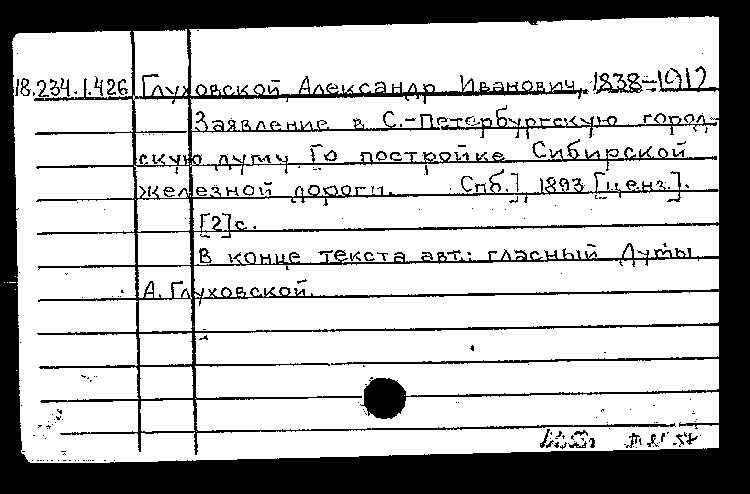 18.234.1.426 Глуховской, Александр Иванович, 1838-1912
Заявление в С.-Петербургскую город-
скую думу [о постройке Сибирской
железной дороги. Спб.], 1893 [ценз.].
[2]с.
В конце текста авт.: гласный Думы
А. Глуховской.